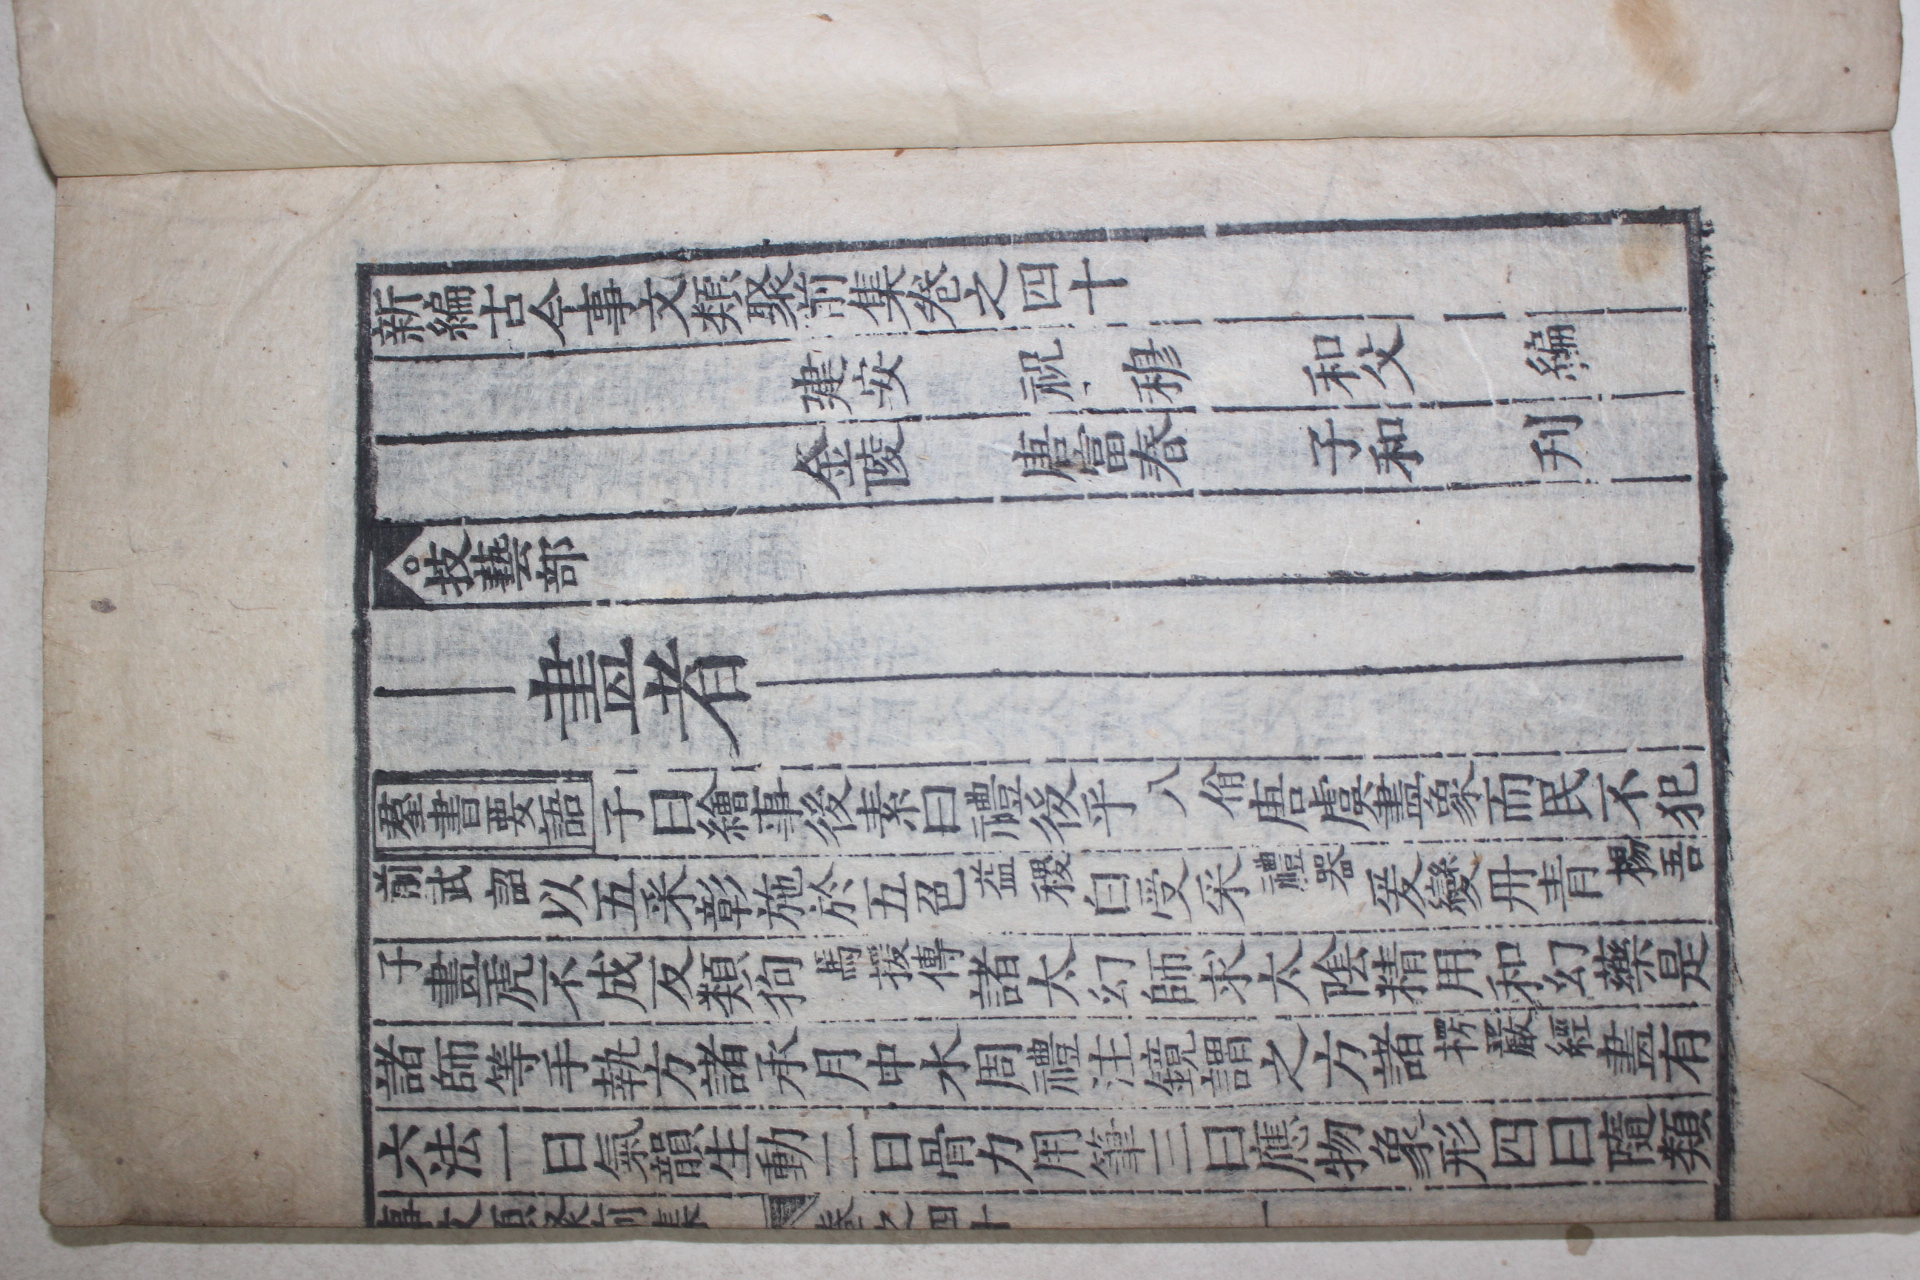 新編古今事文類聚前集卷之四十
建安 祝 穆 和父 編
金陵 唐富春 子和 刊
技藝部
畫者
羣書要語 子曰繪事後素曰禮後乎 八佾 唐虞畫象而民不犯
前武詔 以五采彰施於五色 益稷 白受采 禮器 爰變丹青 楊吾
子 畫虎不成反類狗 馬援傳 諸太幻師求太陰精用和幻藥是
諸師等手執方諸承月中水周禮注鏡謂之方諸 楞嚴經 畫有
六法一曰氣韻生動二曰骨力用筆三曰應物象形四曰隨類
事文類聚前集 卷之四十 一